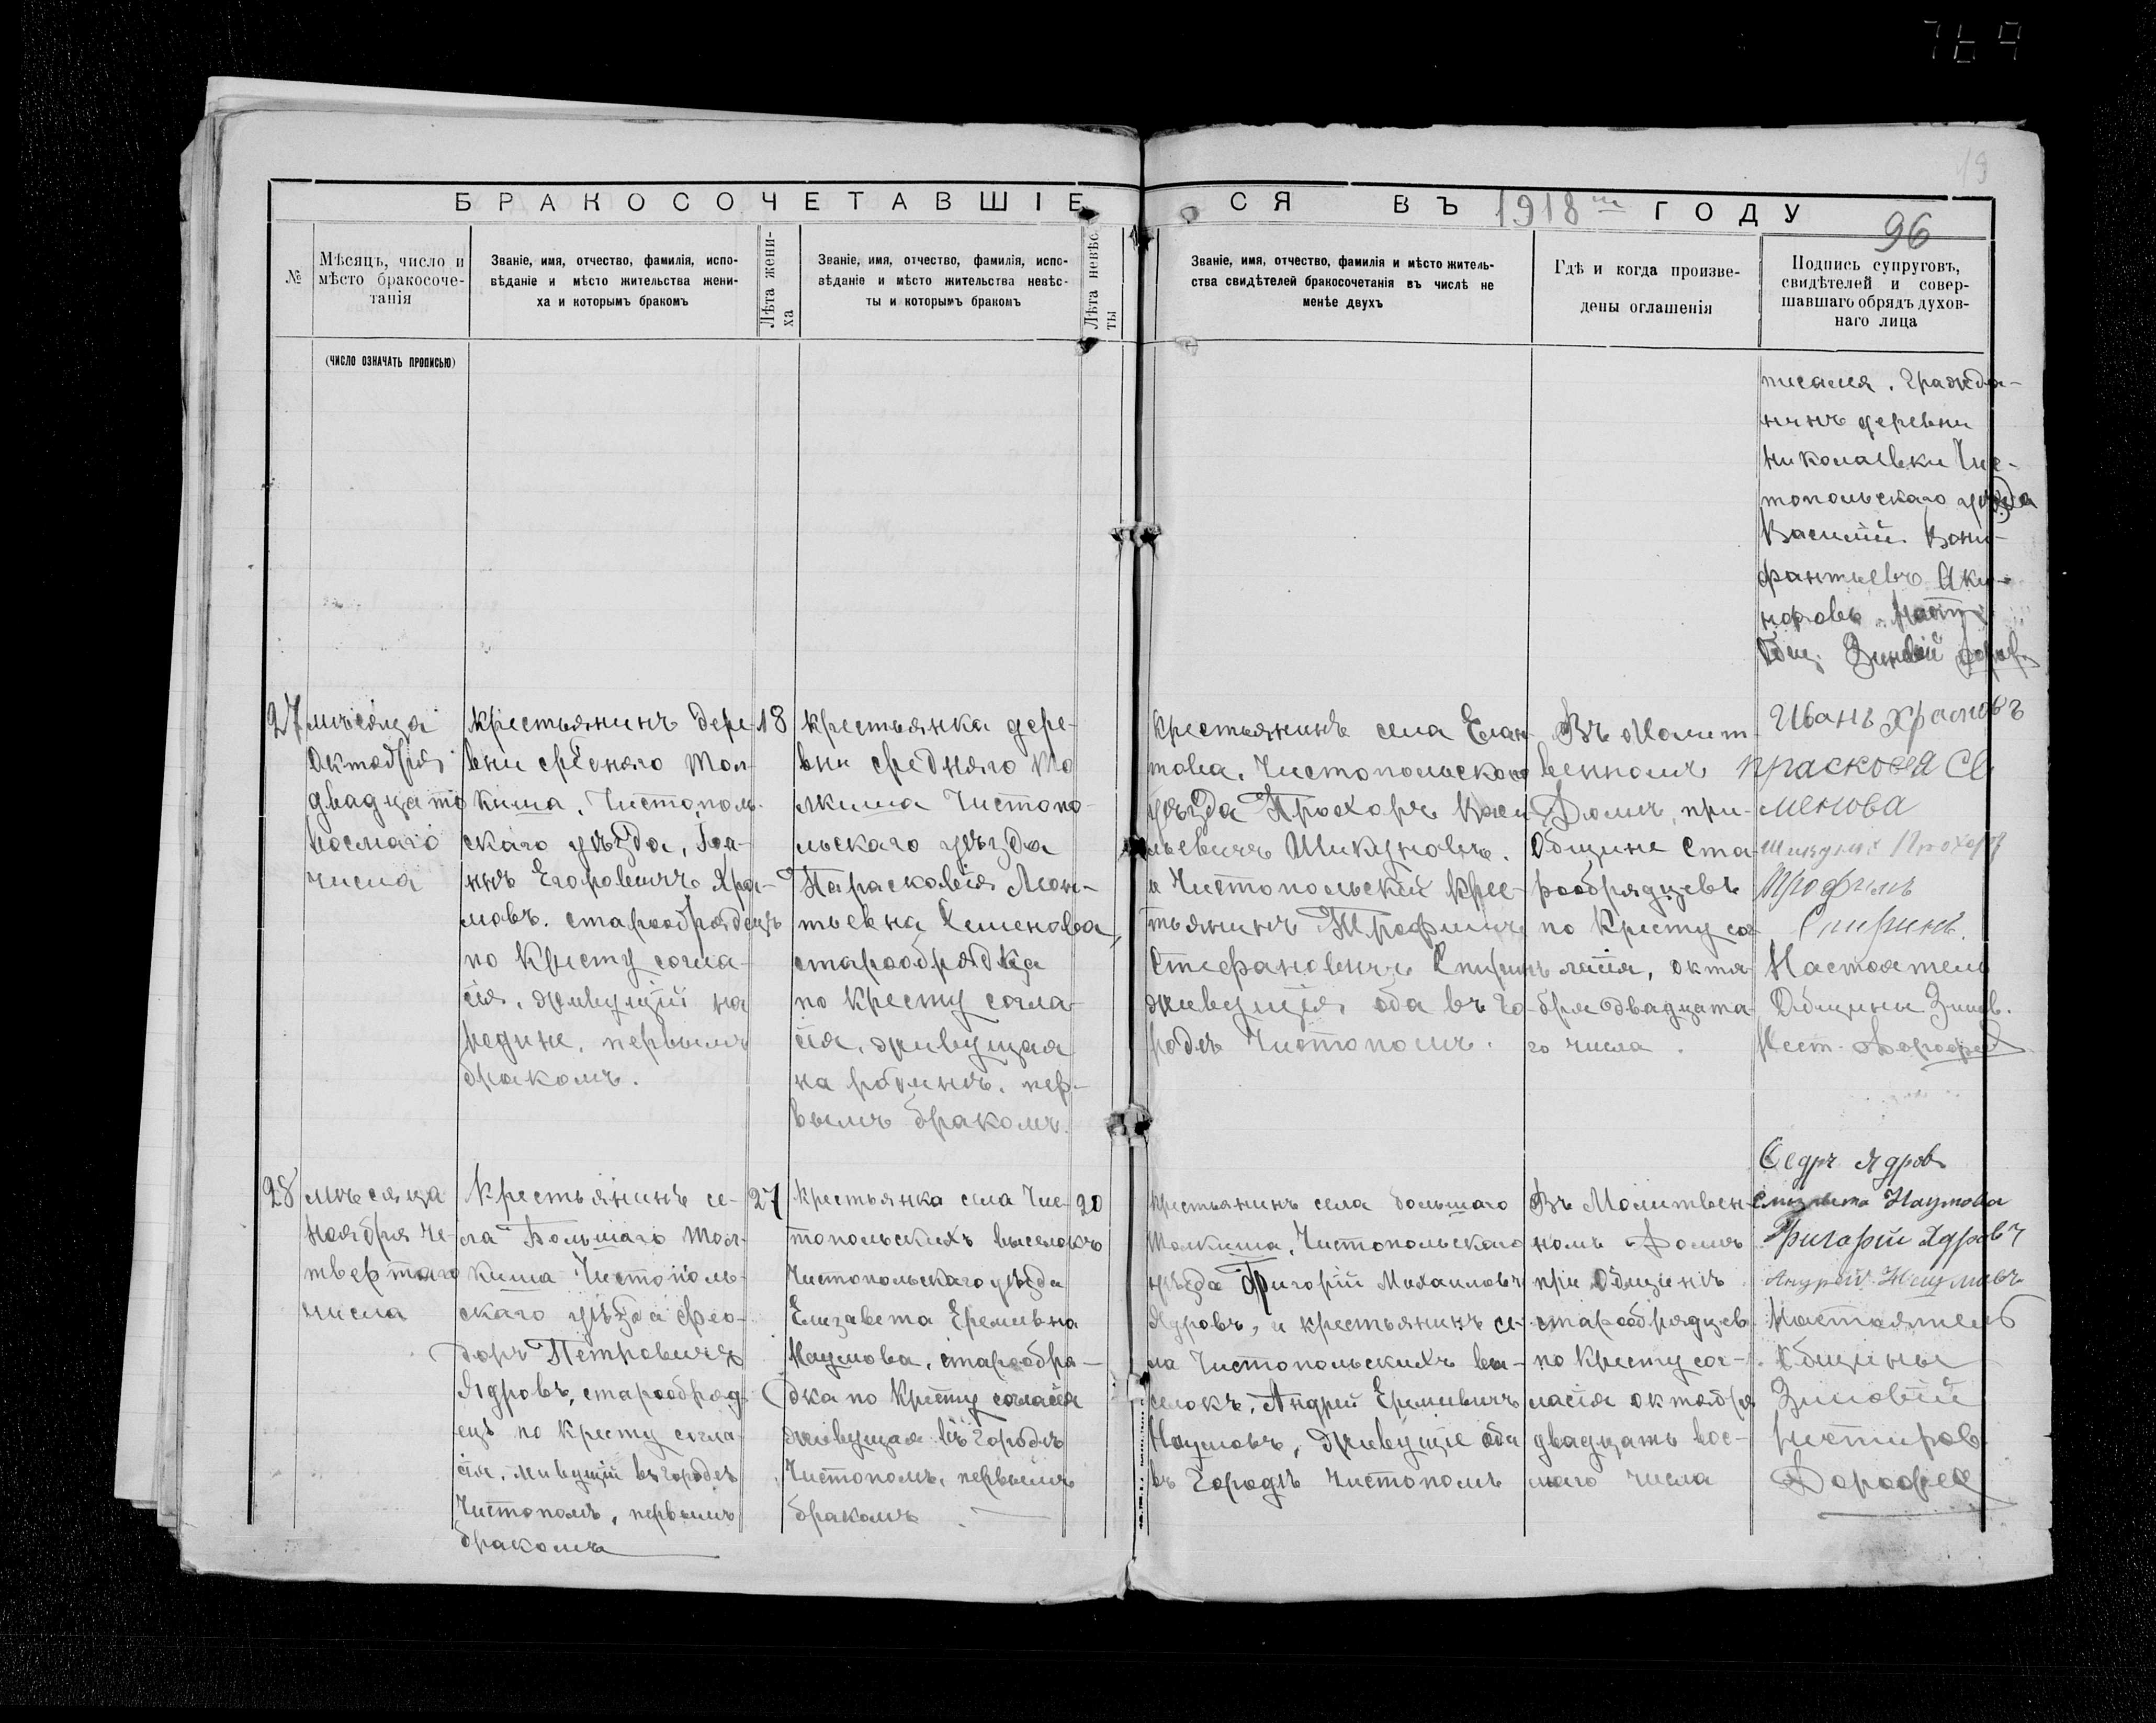 19
БРАКОСОЧЕТАВШІЕСЯ ВЪ 1918 мъ ГОДУ
96
№
Мѣсяцъ, число и
мѣсто бракосоче-
танія
(число означать прописью)
Званіе, имя, отчество, фамилія, испо-
вѣданіе и мѣсто жительства жени-
ха и которымъ бракомъ
Лѣта жени-
ха
Званіе, имя, отчество, фамилія, испо-
вѣданіе и мѣсто жительства невѣс-
ты и которымъ бракомъ
Лѣта невѣс
ты
Званіе, имя, отчество, фамилія и мѣсто житель-
ства свидѣтелей бракосочетанія въ числѣ не
менѣе двухъ
Гдѣ и когда произве-
дены оглашенія
Подпись супруговъ,
свидѣтелей и совер-
шавшаго обрядъ духов-
наго лица
писался. Гражда-
нинъ деревни
Николаевки Чис-
топольскаго уѣзда
Василій Вони-
фантьевъ
Наст.
Общ. Зиновій
27
мѣсяца
Октября
двадцать
восмаго
числа
крестьянинъ дере-
вни средняго Тол-
киша, Чистополь-
скаго уѣзда, Іоа-
ннъ Егоровичъ Хра-
мовъ. старообрядецъ
по Кресту согла-
сія, живущій на
родине, первымъ
бракомъ.
18
крестьянка дере-
вни средняго То
лкиша Чистопо-
льскаго уѣзда
Парасковія Леон-
тьевна Семенова,
старообрядка
по Кресту согла-
сія, живущая
на родинѣ, пер-
вымъ бракомъ.
крестьянинъ села Елан-
това, Чистопольскаго
уѣзда Прохоръ Васи
льевичъ Шикуновъ.
и Чистопольскій крес-
тьянинъ Трофимъ
Стефановичъ Спиринъ
живущія оба въ го-
родѣ Чистополѣ.
Въ Молит-
венномъ
Домѣ, при-
Общине Ста-
рообрядцевъ
по Кресту сог
ласія, октя-
бря двадцата-
го числа.
Иванъ Храмовъ
Прасковея Се
менова
Шикунов Прохор
Трофимъ
Спиринъ.
Настоятель
Общины Зинов.
Нест. Дорофеев
28
мѣсяца
Ноября че-
твертаго
числа
Крестьянинъ се-
ла Большаго Тол-
киша Чистополь-
скаго уѣзда Фео-
доръ Петровичъ
Ядровъ, старообряд-
ецъ по Кресту согла-
сія, живущій въ городѣ
Чистополѣ, первымъ
бракомъ
27
Крестьянка села Чис-
топольскихъ выселокъ
Чистопольскаго уѣзда
Елизавета Еремѣевна
Наумова, старообря-
дка по Кресту согласія
живущая въ городѣ
Чистополѣ, первымъ
бракомъ
20
крестьянинъ села большаго
Толкиша, Чистопольскаго
уѣзда Григорій Михаиловъ
Ядровъ, и крестьянинъ се-
ла Чистопольскихъ вы-
селокъ, Андрей Еремѣевичъ
Наумовъ, живущіе оба
въ Городѣ Чистополѣ
Въ Молитвен-
номъ Домѣ
при Общинѣ
старообрядцев
по Кресту сог-
ласія октября
двадцать вос-
маго числа
Федръ Ядров
Елизавета Наумова
Григорій Ядровъ
Андрей Наумовъ
Настоятель
Общины
Зиновій
Несторов.
Дорофеев